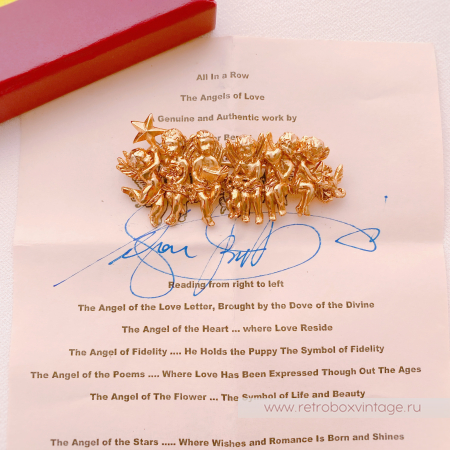 All In a Row
The Angels of Love
Genuine and Authentic work by
Reading from right to left
The Angel of the Love Letter, Brought by the Dove of the Divine
The Angel of the Heart ... where Love Reside
The Angel of Fidelity .... He Holds the Puppy The Symbol of Fidelity
The Angel of the Poems .... Where Love Has Been Expressed Though Out The Ages
The Angel of The Flower ... The Symbol of Life and Beauty
www.retroboxvintage.ru
The Angel of the Stars ..... Where Wishes and Romance Is Born and Shines